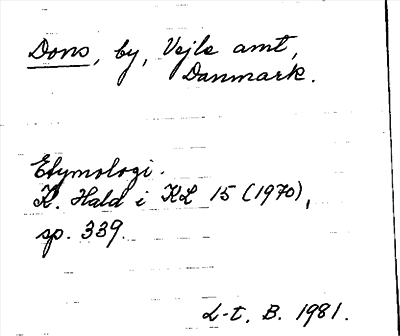 Dons, by, Vejle amt,
Danmark.
Etymologi.
K. Hald i KL 15 (1970),
sp. 339.
L-t. B. 1981.